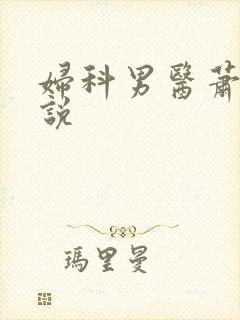 婦科男醫蕭
說
瑪里曼